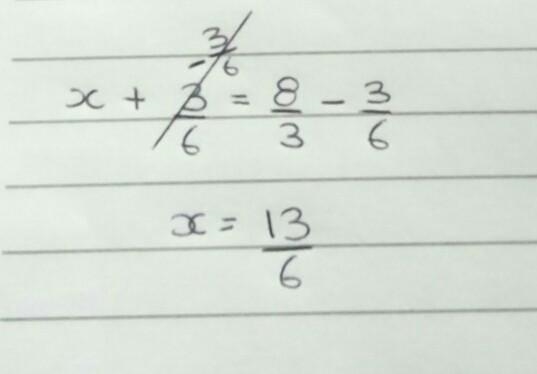 - 3/6
x + 3/6 = 8/3 - 3/6
x = 13/6